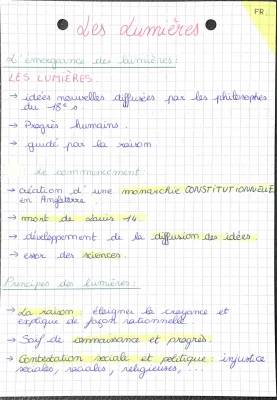 FR
Les Lumières
L'émergeance des lumières :
LES LUMIÈRES :
→ idées nouvelles diffusées par les philosophes
du 18e s
→ Progrès humains.
→ guidé par la raison
Le commencement :
→ création d'une monarchie CONSTITUTIONNELLE
en Angleterre
→ mort de Louis 14.
→ développement de la diffusion des idées.
→ essor des sciences.
Principes des lumières :
→ La raison : éloigner la croyance et
explique de façon rationnelle.
→ Soif de connaissance et progrès.
→ Contestation sociale et politique : injustice
sociales, raciales, religieuses, ...